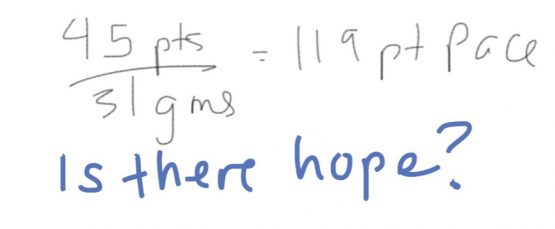 45 pts
31 gms = 119 pt Pace
Is there hope?